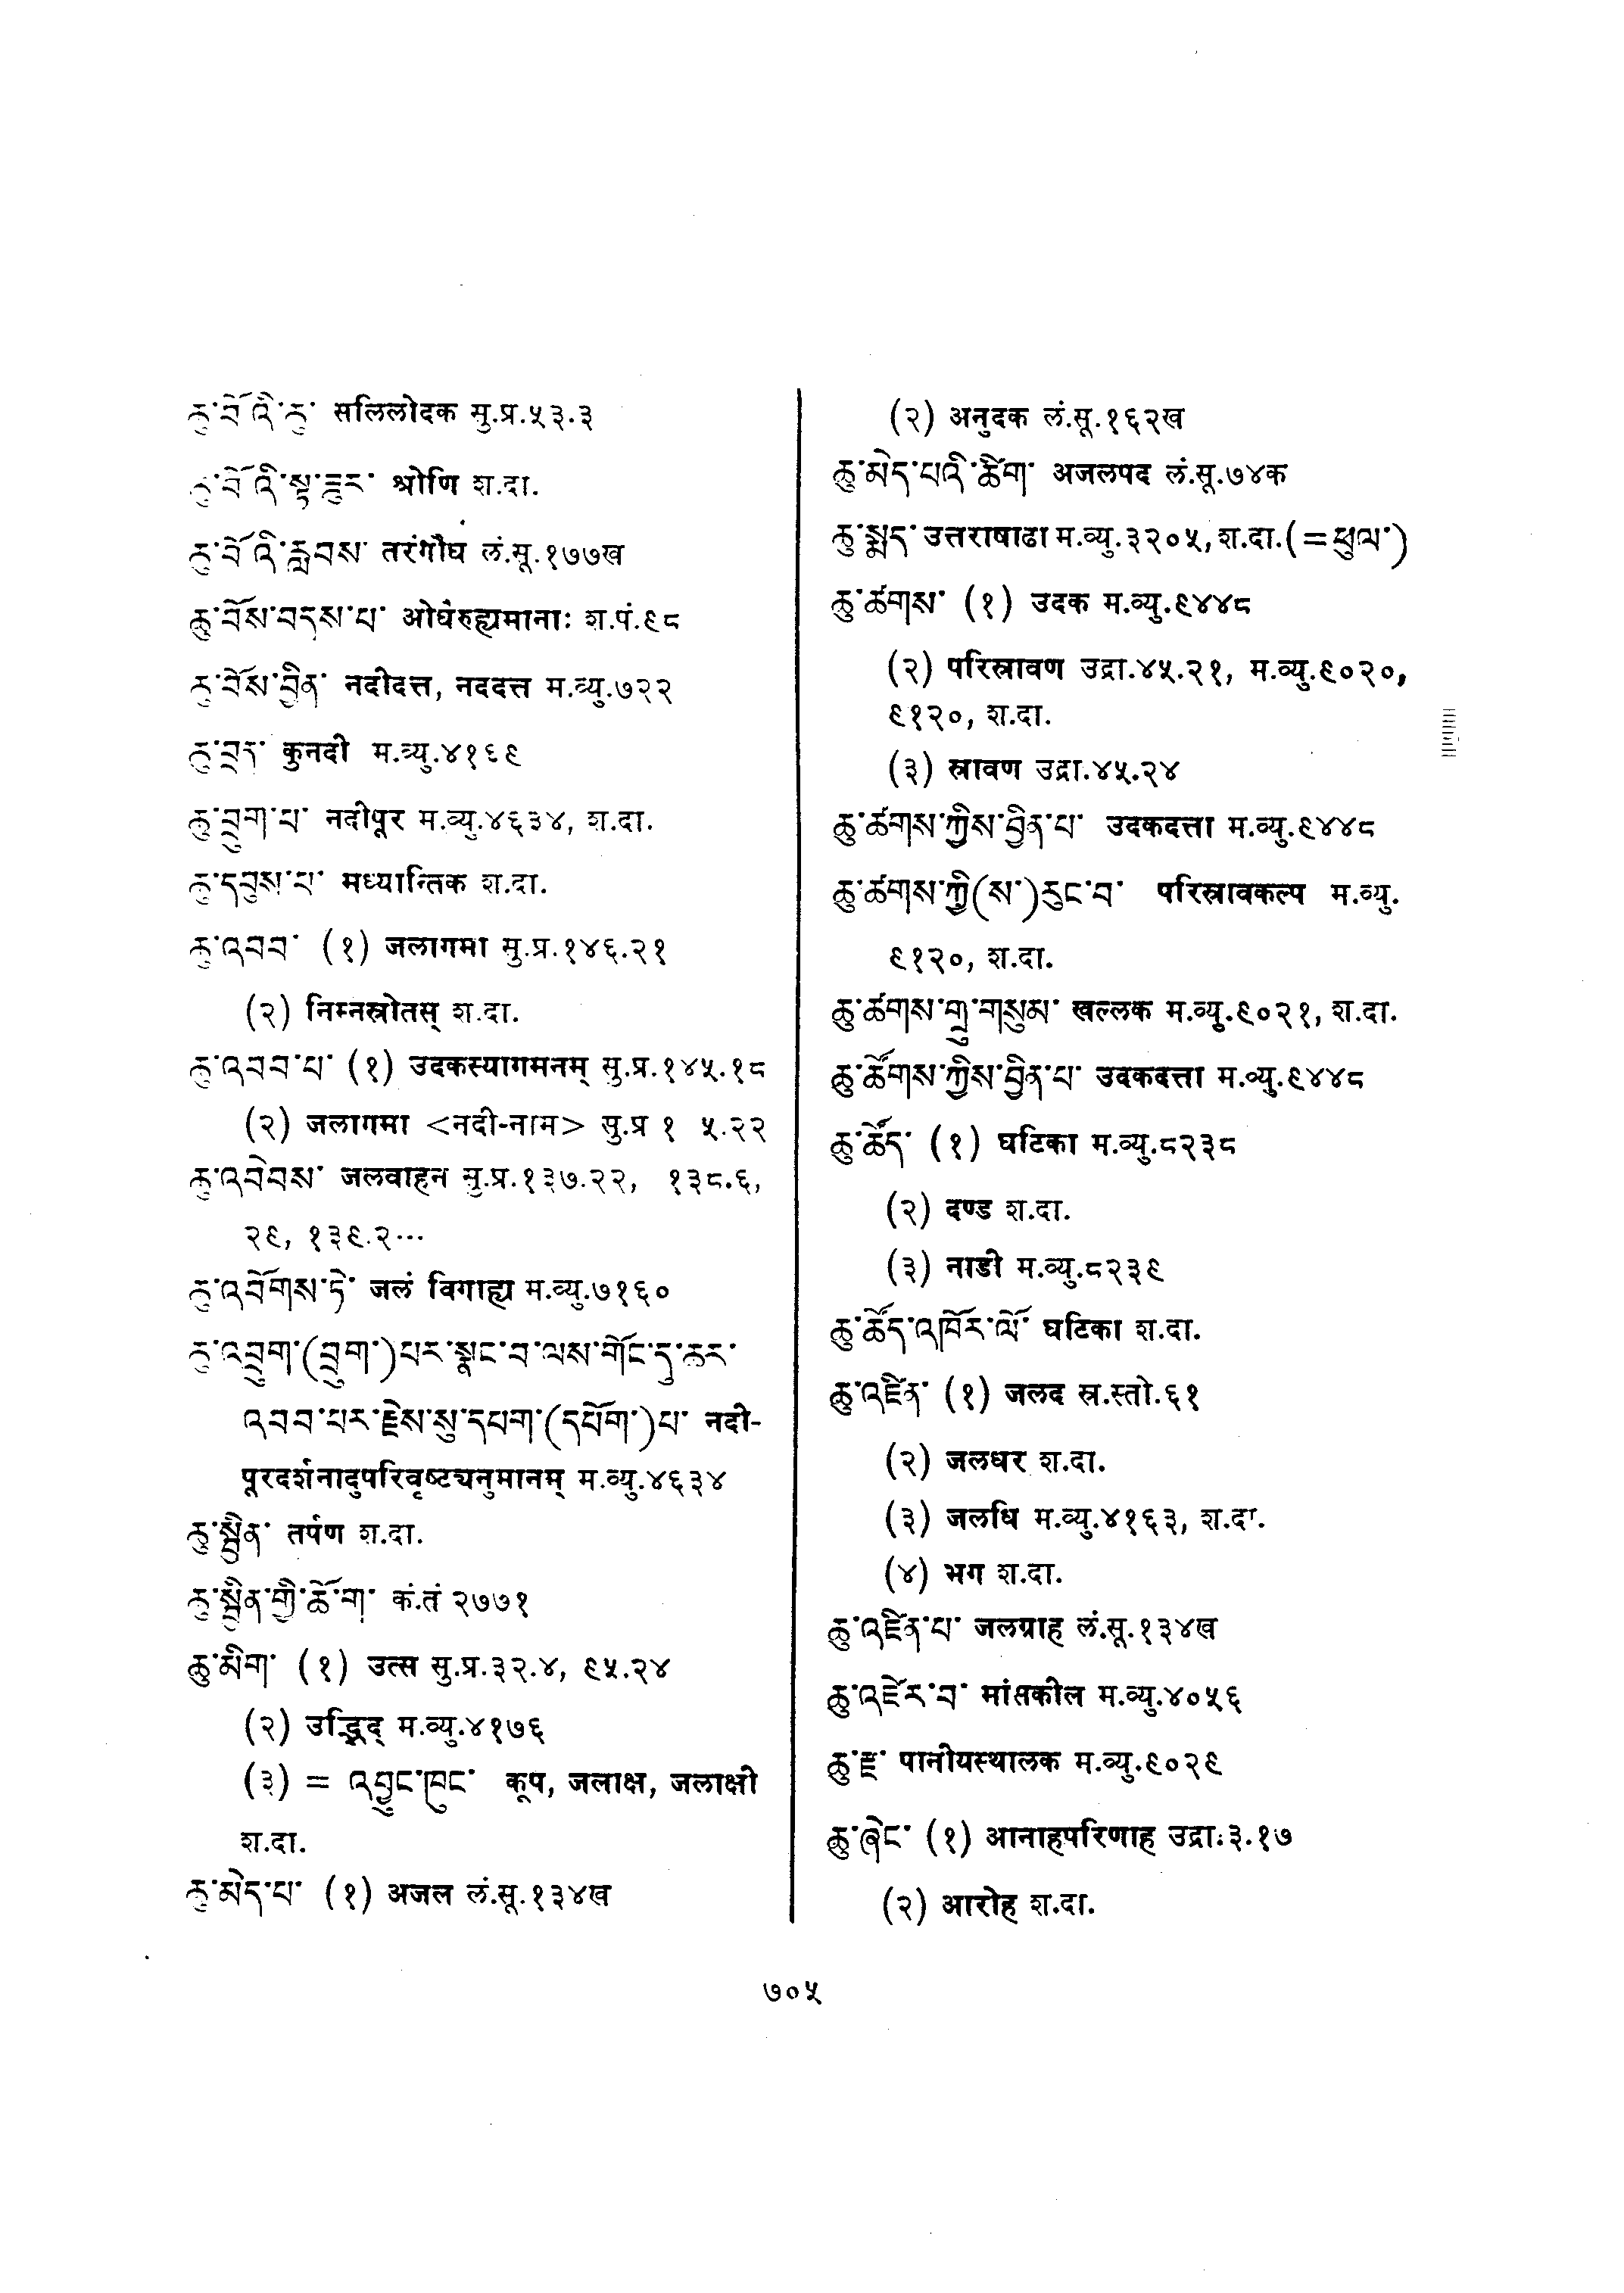 ཆུ་བོའི་ཆུ་ सलिलोदक सु.प्र.५३.३
ཆུ་བོའི་སྟ་ཟུར་ श्रोणि श.दा.
ཆུ་བོའི་རླབས་ तरंगौघ लं.सू.१७७ख
ཆུ་བོས་བདས་པ་ ओघैरुह्यमानाः श.पं.९८
ཆུ་བོས་བྱིན་ नदीदत्त, नददत्त म.व्यु.७२२
ཆུ་བྲན་ कुनदी म.व्यु.४१६९
ཆུ་བྲུག་པ་ नदीपूर म.व्यु.४६३४, श.दा.
ཆུ་དབུས་པ་ मध्यान्तिक श.दा.
ཆུ་འབབ་ (१) जलागमा सु.प्र.१४६.२१
(२) निम्नस्रोतस् श.दा.
ཆུ་འབབ་པ་ (१) उदकस्यागमनम् सु.प्र.१४५.१८
(२) जलागमा <नदी-नाम> सु.प्र १ ५.२२
ཆུ་འབེབས་ जलवाहन सु.प्र.१३७.२२, १३८.६,
२९, १३९.२...
ཆུ་འབོགས་ཏེ་ जलं विगाह्य म.व्यु.७१६०
ཆུ་འབྲུག་(བྲུག་)པར་སྣང་བ་ལས་གོང་དུ་ཆར་
འབབ་པར་རྗེས་སུ་དཔག་(དཔོག་)པ་ नदी-
पूरदर्शनादुपरिवृष्ट्यनुमानम् म.व्यु.४६३४
ཆུ་སྦྱིན་ तर्पण श.दा.
ཆུ་སྦྱིན་གྱི་ཆོ་ག་ कं.तं २७७१
ཆུ་མིག་ (१) उत्स सु.प्र.३२.४, ९५.२४
(२) उद्भिद् म.व्यु.४१७६
(३) = འབྱུང་ཁུང་ कूप, जलाक्ष, जलाक्षी
श.दा.
ཆུ་མེད་པ་ (१) अजल लं.सू.१३४ख
(२) अनुदक लं.सू.१६२ख
ཆུ་མེད་པའི་ཚིག་ अजलपद लं.सू.७४क
ཆུ་སྨད་ उत्तराषाढा म.व्यु.३२०५, श.दा.(=ཕུལ་)
ཆུ་ཚགས་ (१) उदक म.व्यु.९४४८
(२) परिस्रावण उद्रा.४५.२१, म.व्यु.९०२०,
९१२०, श.दा.
(३) स्रावण उद्रा.४५.२४
ཆུ་ཚགས་ཀྱིས་བྱིན་པ་ उदकदत्ता म.व्यु.९४४८
ཆུ་ཚགས་ཀྱི(ས་)རུང་བ་ परिस्रावकल्प म.व्यु.
९१२०, श.दा.
ཆུ་ཚགས་གྲུ་གསུམ་ खल्लक म.व्यु.९०२१, श.दा.
ཆུ་ཚོགས་ཀྱིས་བྱིན་པ་ उदकदत्ता म.व्यु.९४४८
ཆུ་ཚོད་ (१) घटिका म.व्यु.८२३८
(२) दण्ड श.दा.
(३) नाडी म.व्यु.८२३९
ཆུ་ཚོད་འཁོར་ལོ་ घटिका श.दा.
ཆུ་འཛིན་ (१) जलद स्र.स्तो.६१
(२) जलधर श.दा.
(३) जलधि म.व्यु.४१६३, श.दा.
(४) भग श.दा.
ཆུ་འཛིན་པ་ जलग्राह लं.सू.१३४ख
ཆུ་འཛེར་བ་ मांसकील म.व्यु.४०५६
ཆུ་རྫ་ पानीयस्थालक म.व्यु.९०२९
ཆུ་ཞེང་ (१) आनाहपरिणाह उद्रा.३.१७
(२) आरोह श.दा.
७०५